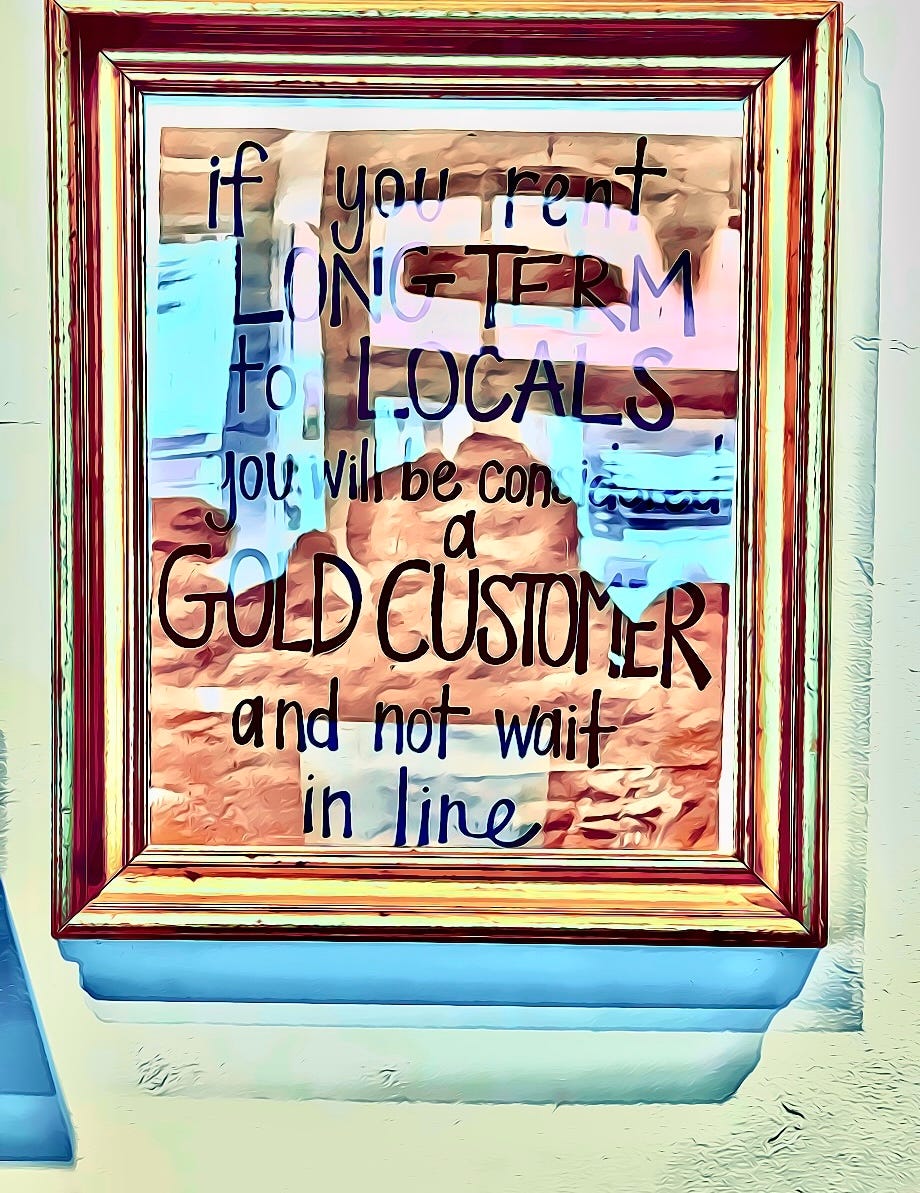 if you rent
LONG-TERM
to LOCALS
you will be considered
a
GOLD CUSTOMER
and not wait
in line